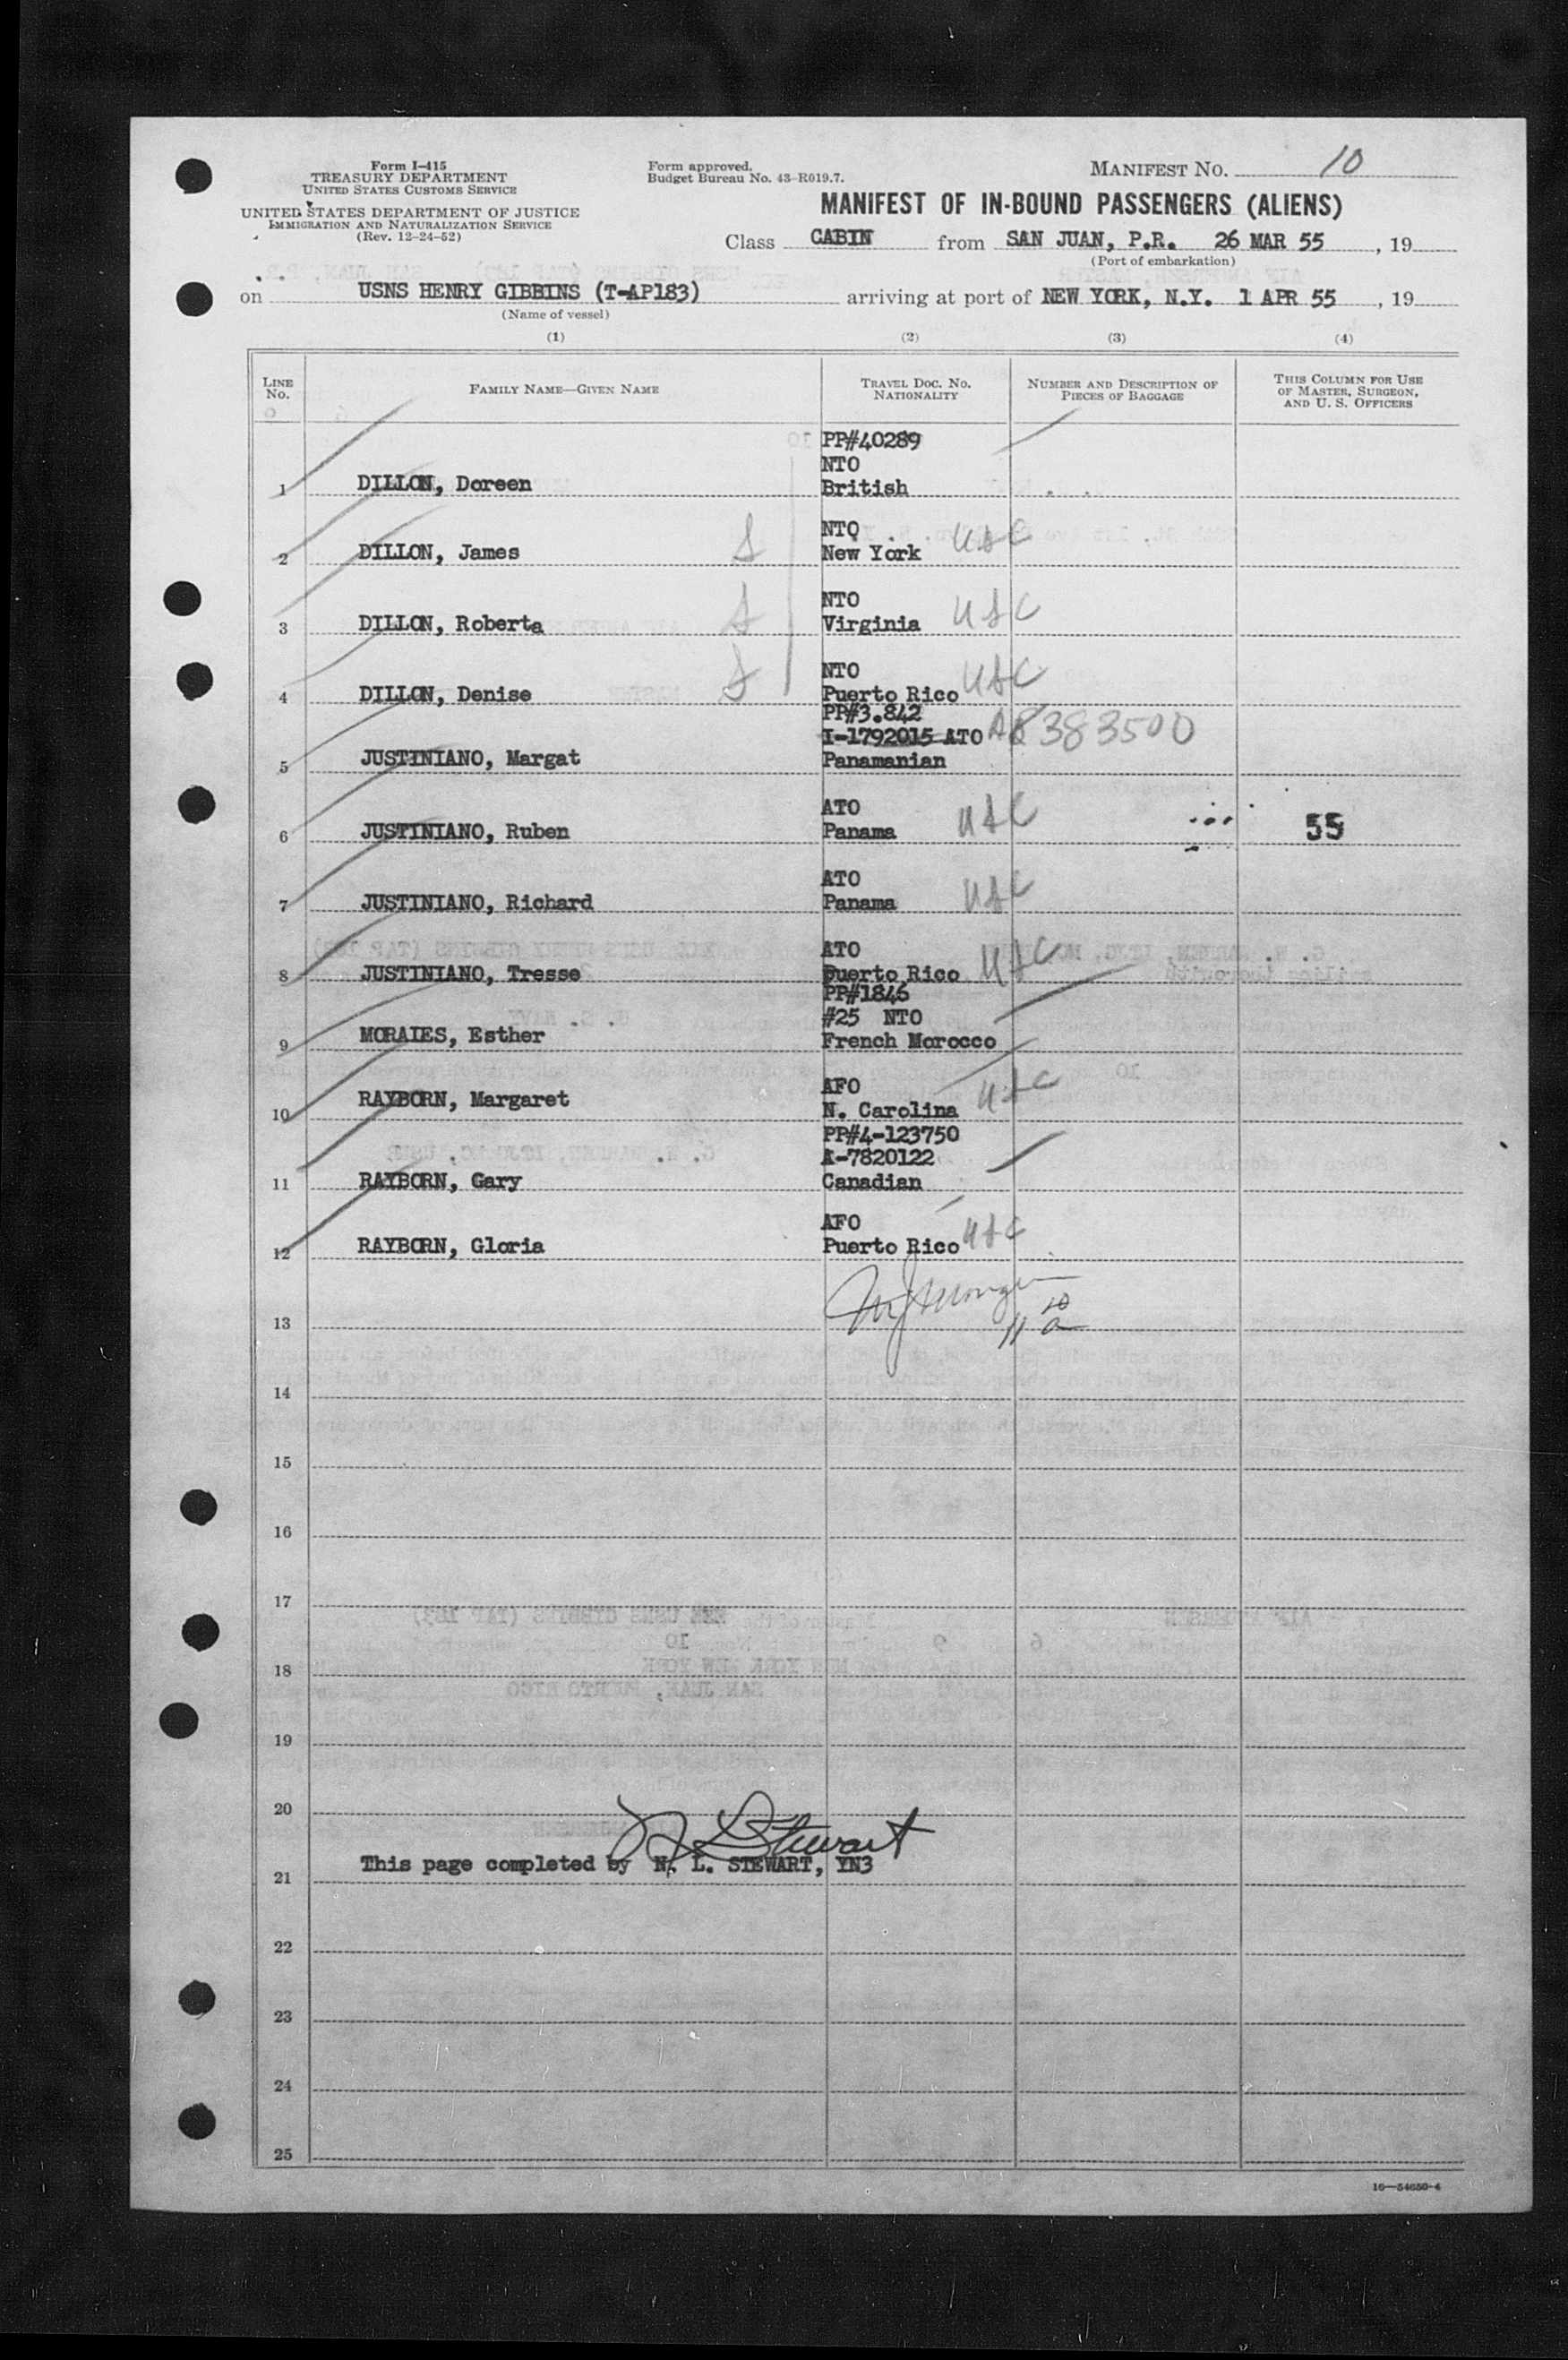 Form I-415
TREASURY DEPARTMENT
UNITED STATES CUSTOMS SERVICE
UNITED STATES DEPARTMENT OF JUSTICE
IMMIGRATION AND NATURALIZATION SERVICE
(Rev. 12-24-52)
Form approved.
Budget Bureau No. 43-R019.7.
MANIFEST NO. 10
MANIFEST OF IN-BOUND PASSENGERS (ALIENS)
Class CABIN from SAN JUAN, P.R. 26 MAR 55, 19
(Port of embarkation)
on USNS HENRY GIBBINS (T-AP183) arriving at port of NEW YORK, N.Y. 1 APR 55, 19
(Name of vessel)
(1) (2) (3) (4)
LINE No.
FAMILY NAME—GIVEN NAME
TRAVEL DOC. NO. NATIONALITY
NUMBER AND DESCRIPTION OF PIECES OF BAGGAGE
THIS COLUMN FOR USE OF MASTER, SURGEON, AND U. S. OFFICERS
PP#40289
NTO
1 DILLON, Doreen British
NTO
2 DILLON, James New York USC
NTO
3 DILLON, Roberta Virginia USC
NTO
4 DILLON, Denise Puerto Rico USC
PP#3.842
I-1792015 ATO A8383500
5 JUSTINIANO, Margat Panamanian
ATO
6 JUSTINIANO, Ruben Panama USC 55
ATO
7 JUSTINIANO, Richard Panama USC
ATO
8 JUSTINIANO, Tresse Puerto Rico USC
PP#1846
#25 NTO
9 MORALES, Esther French Morocco
AFO
10 RAYBORN, Margaret N. Carolina USC
PP#4-123750
A-7820122
11 RAYBORN, Gary Canadian
AFO
12 RAYBORN, Gloria Puerto Rico USC
13
14
15
16
17
18
19
20
N L Stewart
21 This page completed by N. L. STEWART, YN3
22
23
24
25
16—54650-4